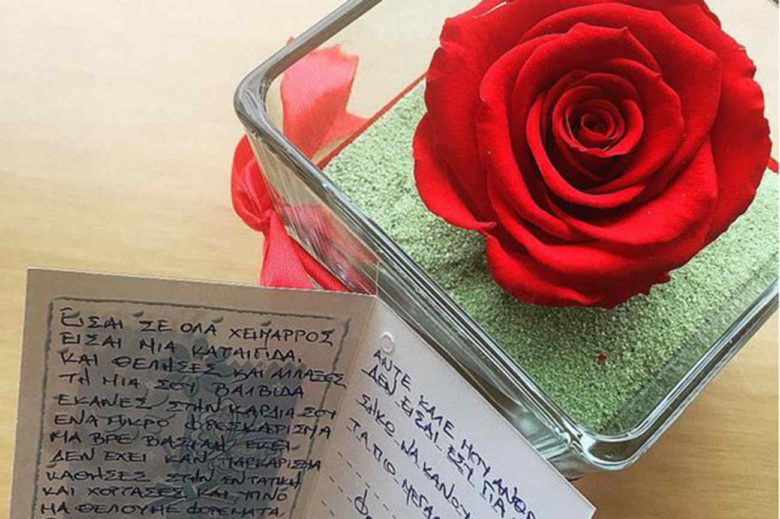 ΕΙΣΑΙ ΣΕ ΟΛΑ ΧΕΙΜΑΡΡΟΣ
ΕΙΣΑΙ ΜΙΑ ΚΑΤΑΙΓΙΔΑ,
ΚΑΙ ΘΕΛΗΣΕΣ ΚΑΙ ΑΛΛΑΞΕΣ
ΤΗ ΜΙΑ ΣΟΥ ΒΑΛΒΙΔΑ
ΕΚΑΝΕΣ ΣΤΗΝ ΚΑΡΔΙΑ ΣΟΥ
ΕΝΑ ΜΙΚΡΟ ΦΡΕΣΚΑΡΙΣΜΑ
ΜΑ ΒΡΕ ΕΚΕΙ
ΔΕΝ ΕΧΕΙ ΚΑΝ ΠΑΡΚΑΡΙΣΜΑ
ΚΑΘΗΣΕΣ ΣΤΗΝ ΕΝΤΑΤΙΚΗ
ΚΑΙ ΧΟΡΤΑΣΕΣ ΚΑΙ ΥΠΝΟ
ΜΑ ΘΕΛΟΥΝΕ ΦΟΡΕΜΑΤΑ
ΑΝΤΕ ΚΑΛΕ ΜΟΥ ΑΝΘΟ
ΔΕΝ ΕΙΣΑΙ ΕΣΥ ΓΙΑ
ΣΗΚΩ ΝΑ ΚΑΝΟΥ
ΤΑ ΠΙΟ ΜΕΓΑ